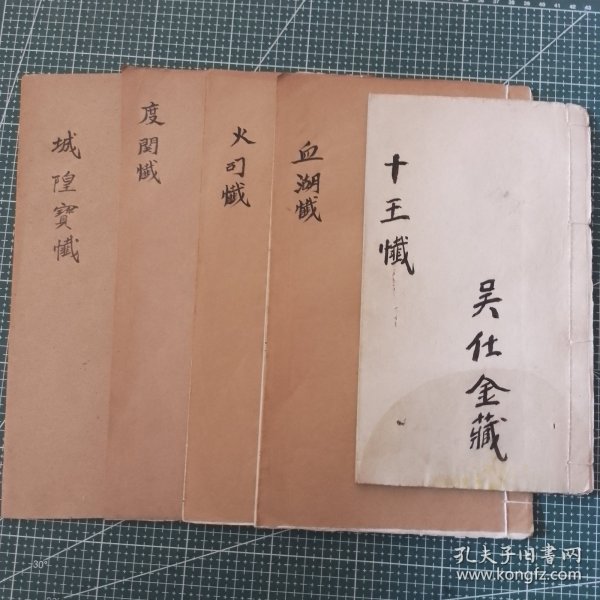 城隍寳懺
度関懺
火司懺
血湖懺
十王懺
吴仕金藏
孔夫子旧書网
www.kongfz.com